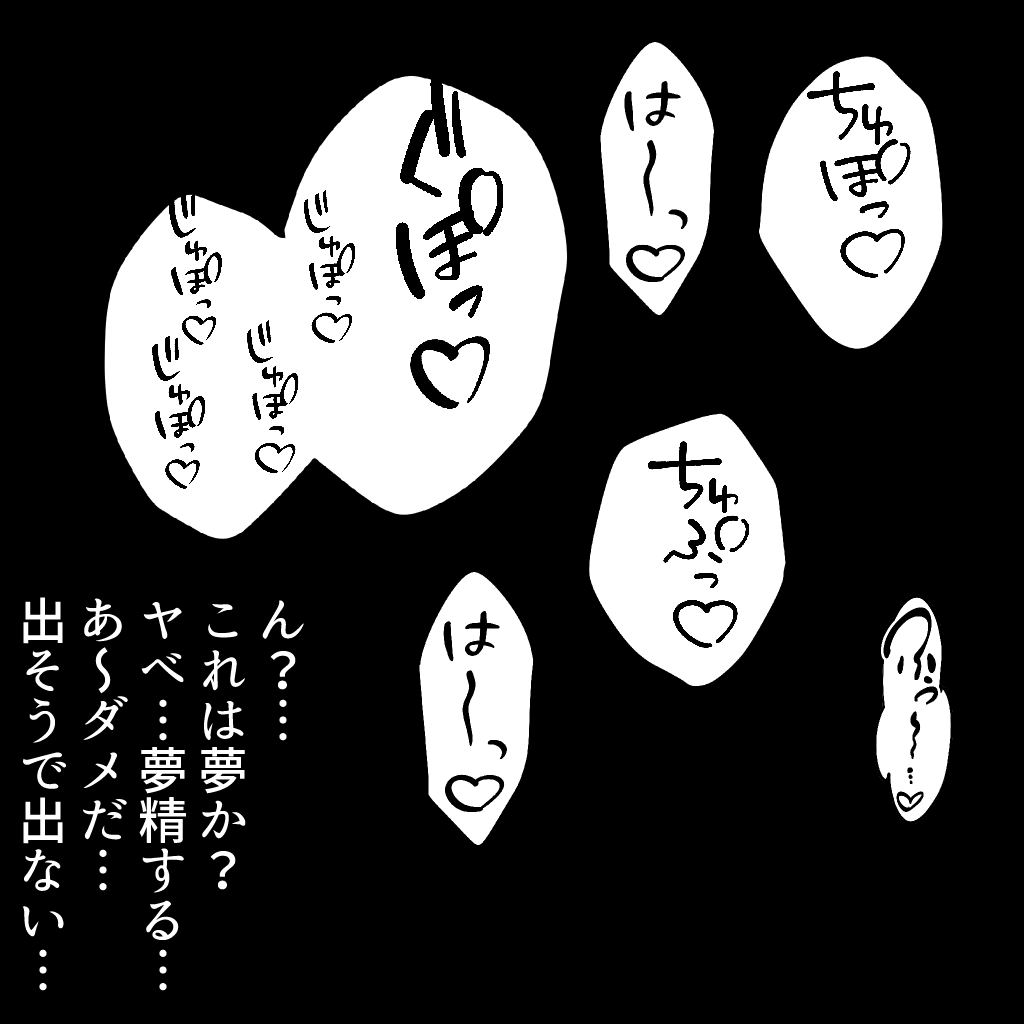 ちゅぽっ♡
は〜っ♡
ぐぽっ♡
じゅぽっ♡
じゅぽっ♡
じゅぽっ♡
じゅぽっ♡
ちゅぷっ♡
は〜っ♡
ん?…
これは夢か?
ヤベ…夢精する…
あ〜ダメだ…
出そうで出ない…